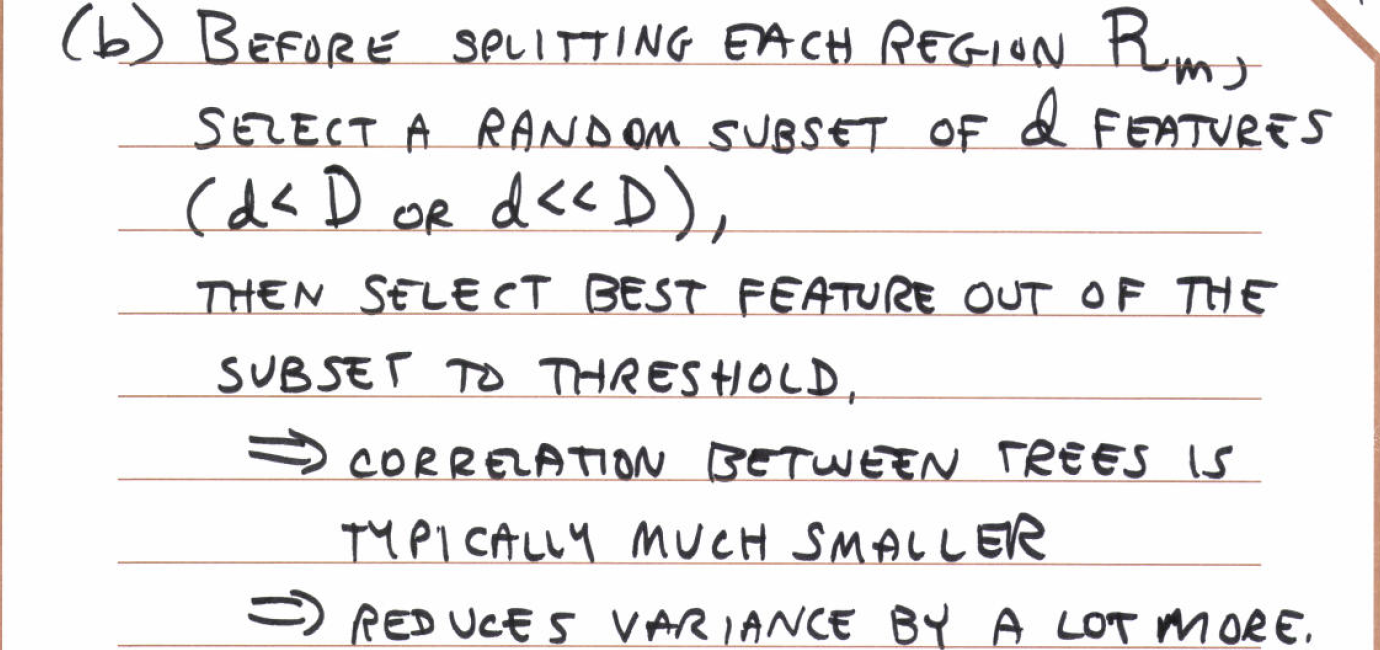 (b) BEFORE SPLITTING EACH REGION Rm,
SELECT A RANDOM SUBSET OF d FEATURES
(d< D OR d<< D),
THEN SELECT BEST FEATURE OUT OF THE
SUBSET TO THRESHOLD.
⇒ CORRELATION BETWEEN TREES IS
TYPICALLY MUCH SMALLER
⇒ REDUCES VARIANCE BY A LOT MORE.